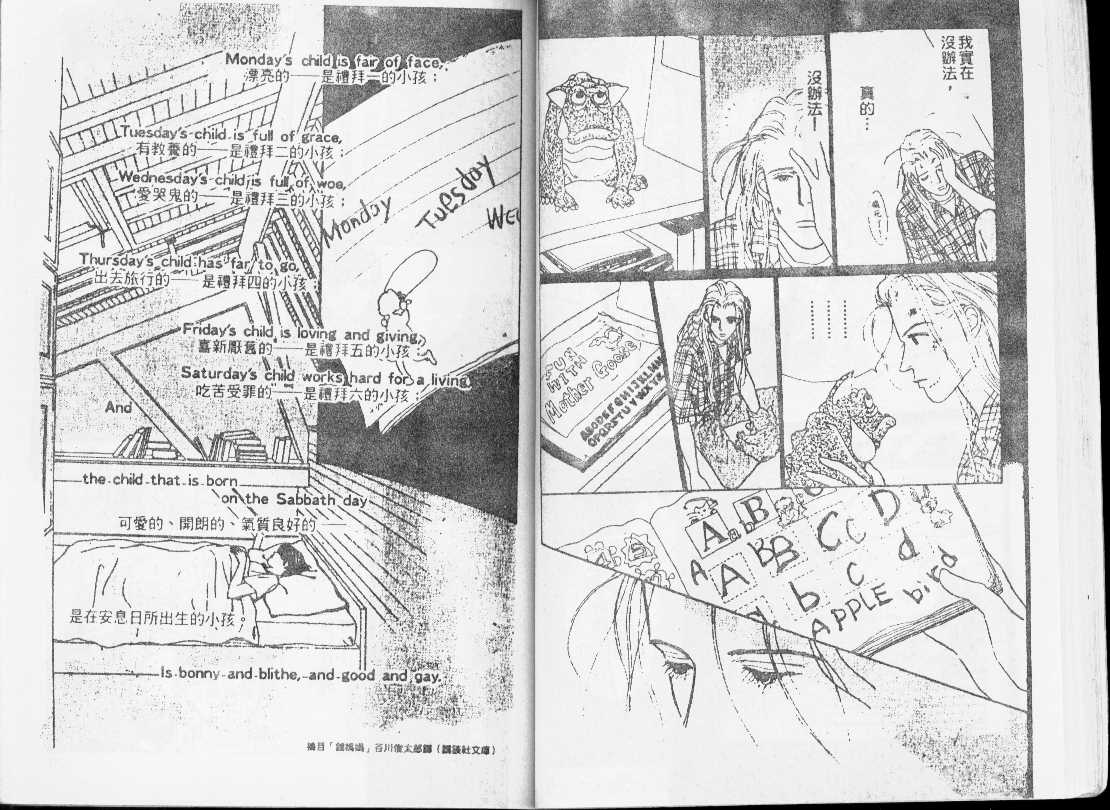 我實在
沒辦法，
真的…
沒辦法！
FUN
WITH
Mother Goose
ABCDEFGHIJKLMN
OPQRSTUVWXYZ
A
B
A
BB
Cc
D
A
b
c
d
APPLE
bird
Monday's child is fair of face,
漂亮的——是禮拜一的小孩；
Tuesday's child is full of grace,
有教養的——是禮拜二的小孩；
Wednesday's child is full of woe,
愛哭鬼的——是禮拜三的小孩；
Monday
Tuesday
Wed
Thursday's child has far to go,
出去旅行的——是禮拜四的小孩；
Friday's child is loving and giving,
喜新厭舊的——是禮拜五的小孩；
Saturday's child works hard for a living,
吃苦受罪的——是禮拜六的小孩；
And
the child that is born
on the Sabbath day
可愛的、開朗的、氣質良好的——
是在安息日所出生的小孩。
Is bonny and blithe, and good and gay.
摘目「鵝媽媽」谷川俊太郎譯（講談社文庫）